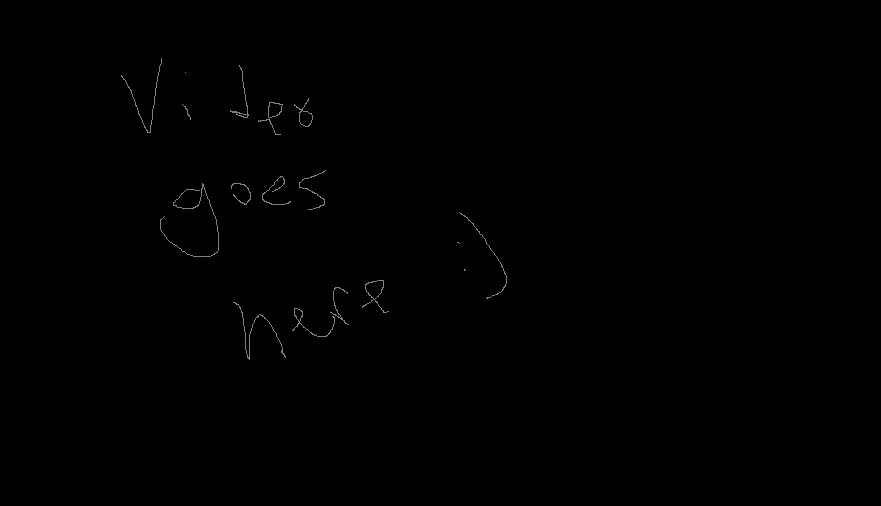 Video
goes
here :)